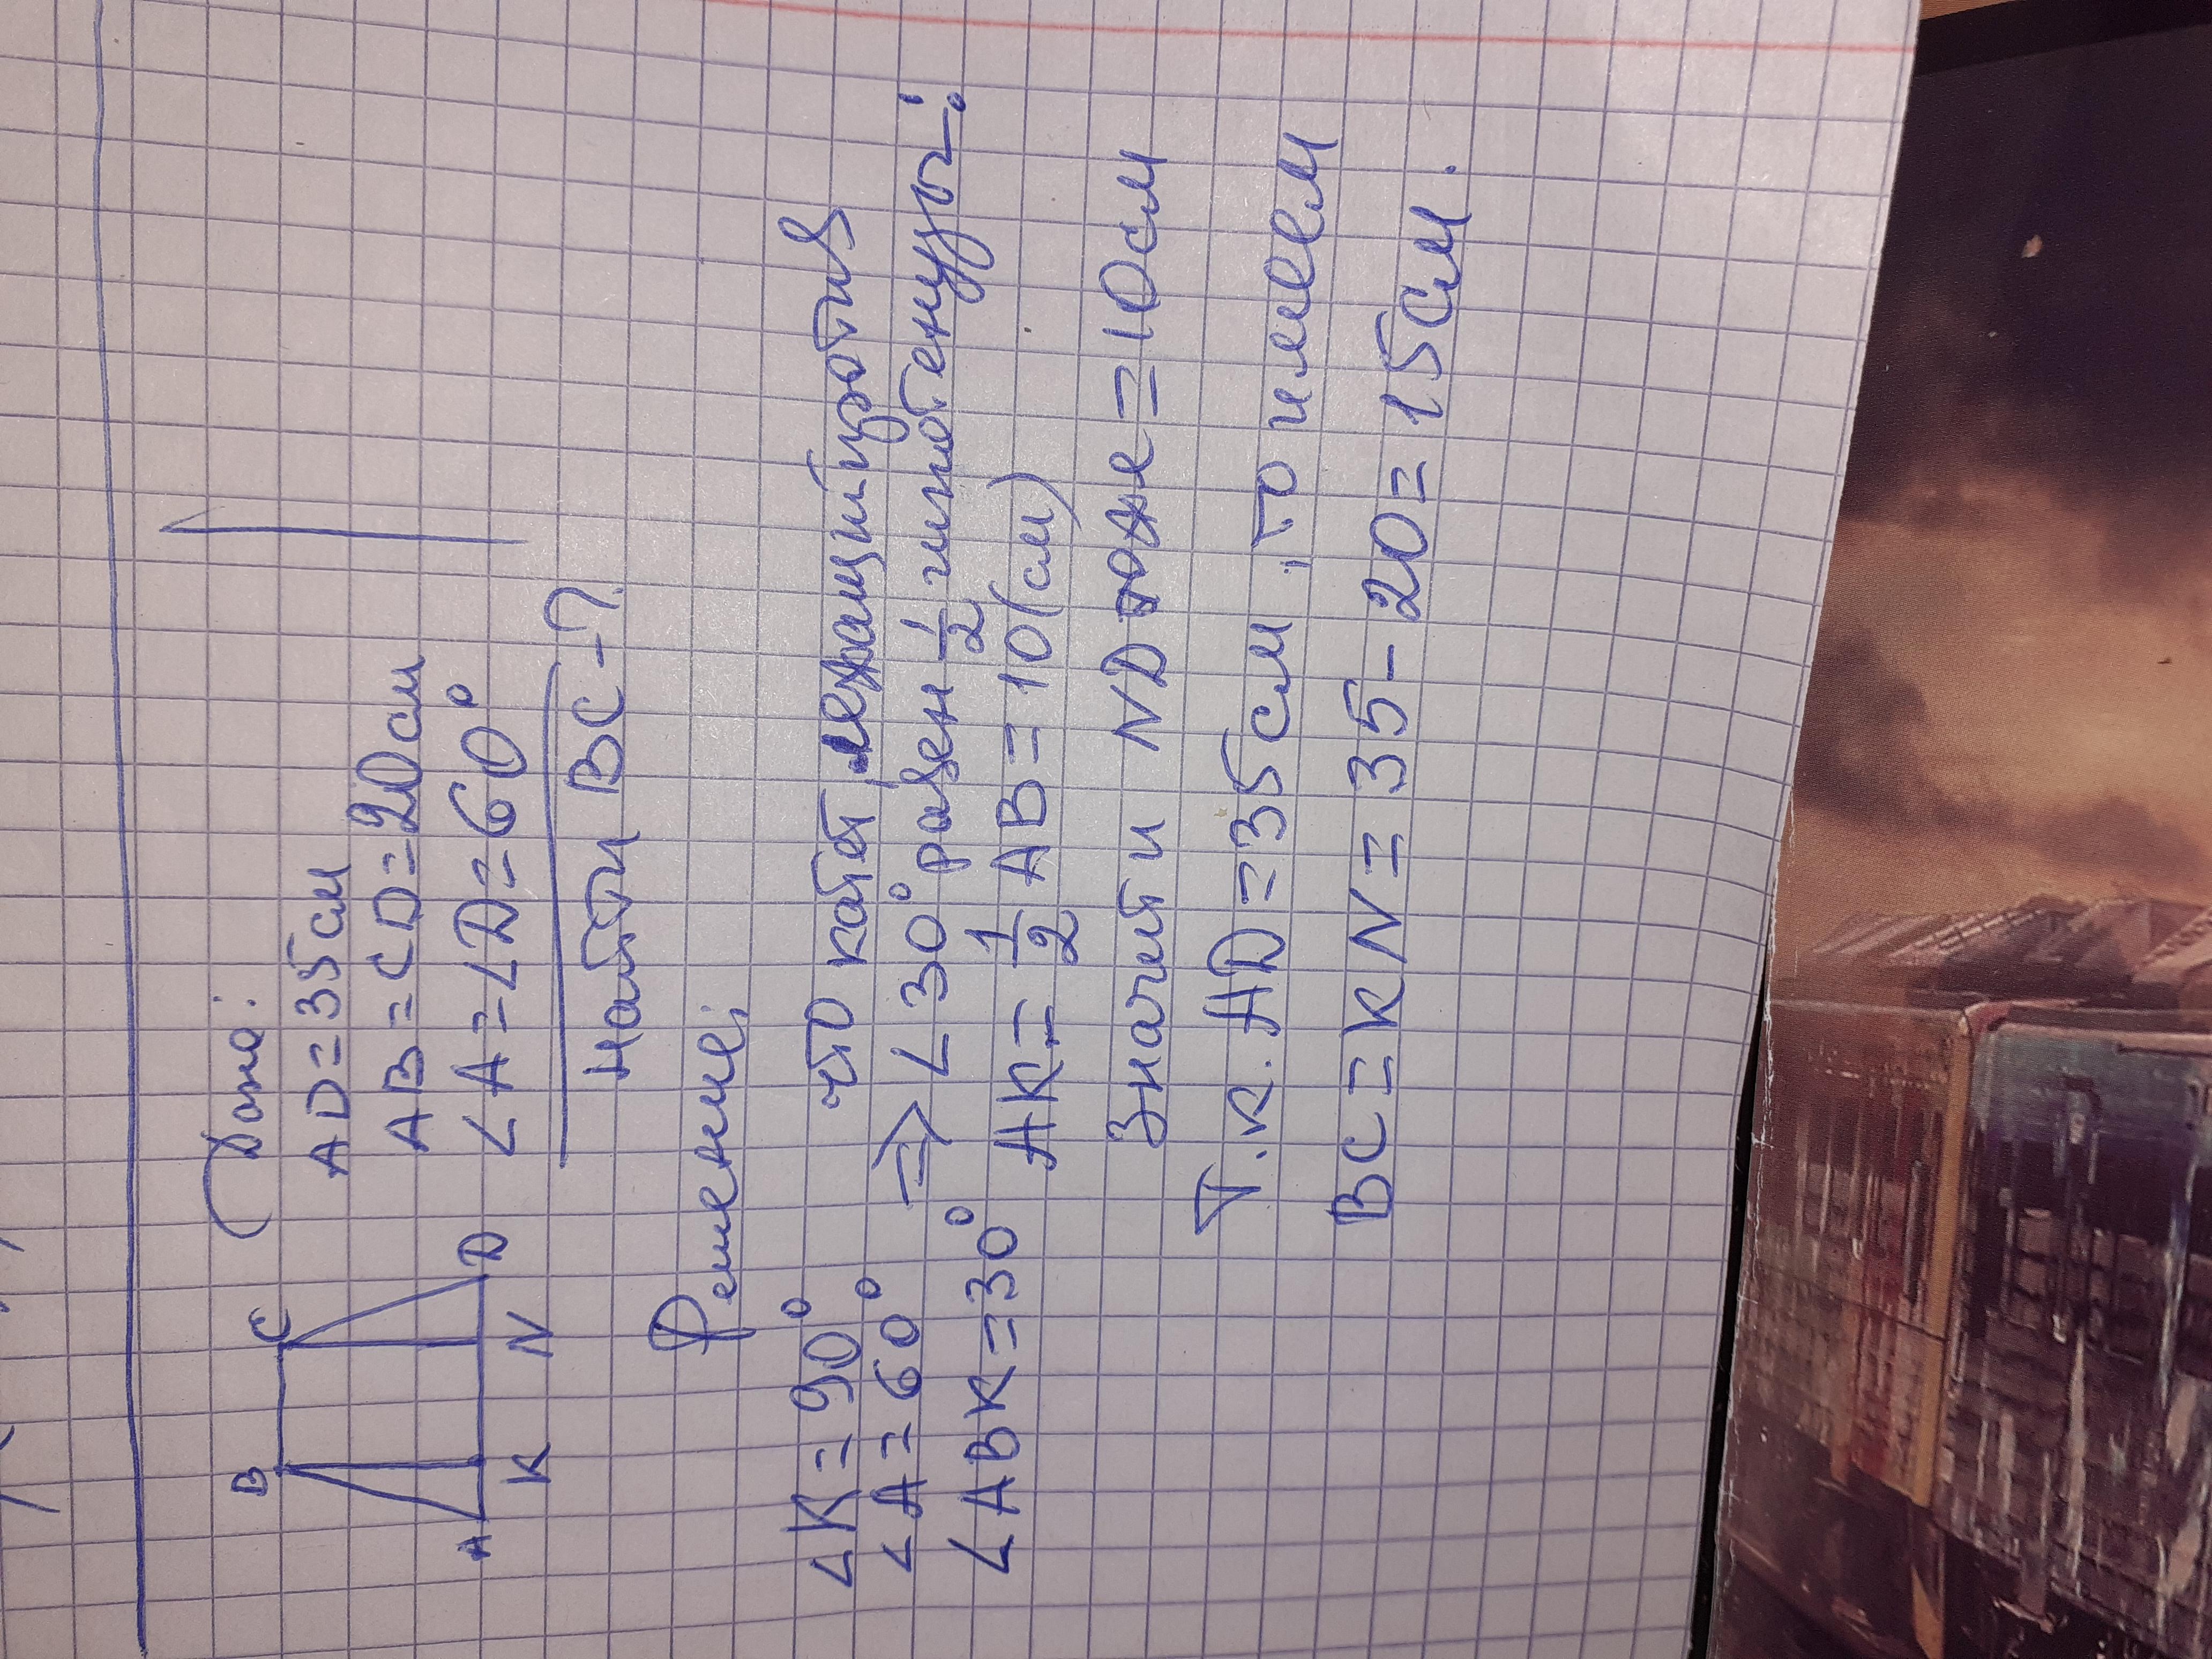 B C
A K N D
Дано:
AD=35см
AB=CD=20см
∠A=∠D=60°
Найти BC-?
Решение:
∠K=90° что катет лежащий против
∠A=60° => ∠30° равен 1/2 гипотенузы:
∠ABK=30° AK=1/2 AB=10(см)
Значит и ND тоже=10см
Т.к. AD=35см, то имеем
BC=KN=35-20=15см.